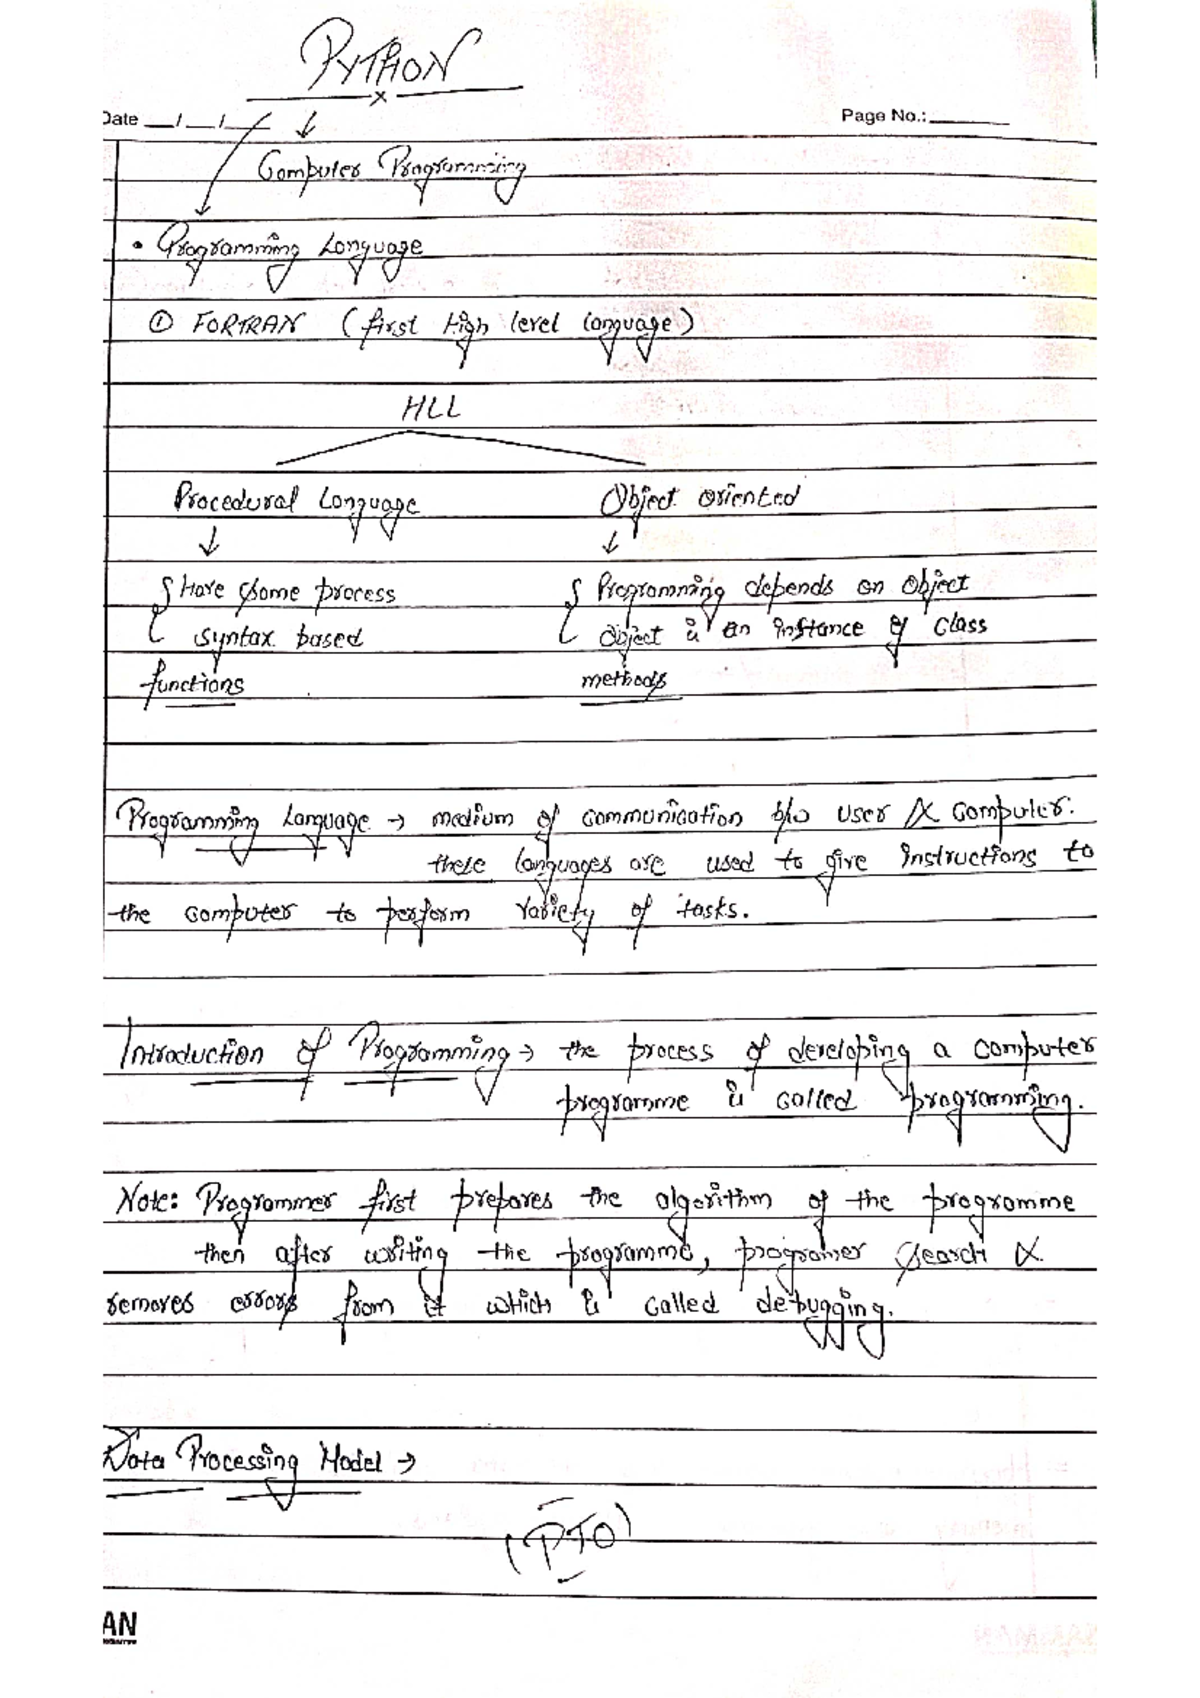 PYTHON
Date __/__/__ Page No.: ______
Computer Programming
• Programming Language
① FORTRAN (first High level language)
HLL
Procedural Language Object oriented
↓ ↓
{ Have some process { Programming depends on object
syntax based object is an instance of class
functions methods
Programming Language → medium of communication b/w user & computer.
these languages are used to give instructions to
the computer to perform variety of tasks.
Introduction of Programming → the process of developing a computer
programme is called programming.
Note: Programmer first prepares the algorithm of the programme
then after writing the programme, programer search &
removes errors from it which is called debugging.
Data Processing Model →
(PTO)
AN